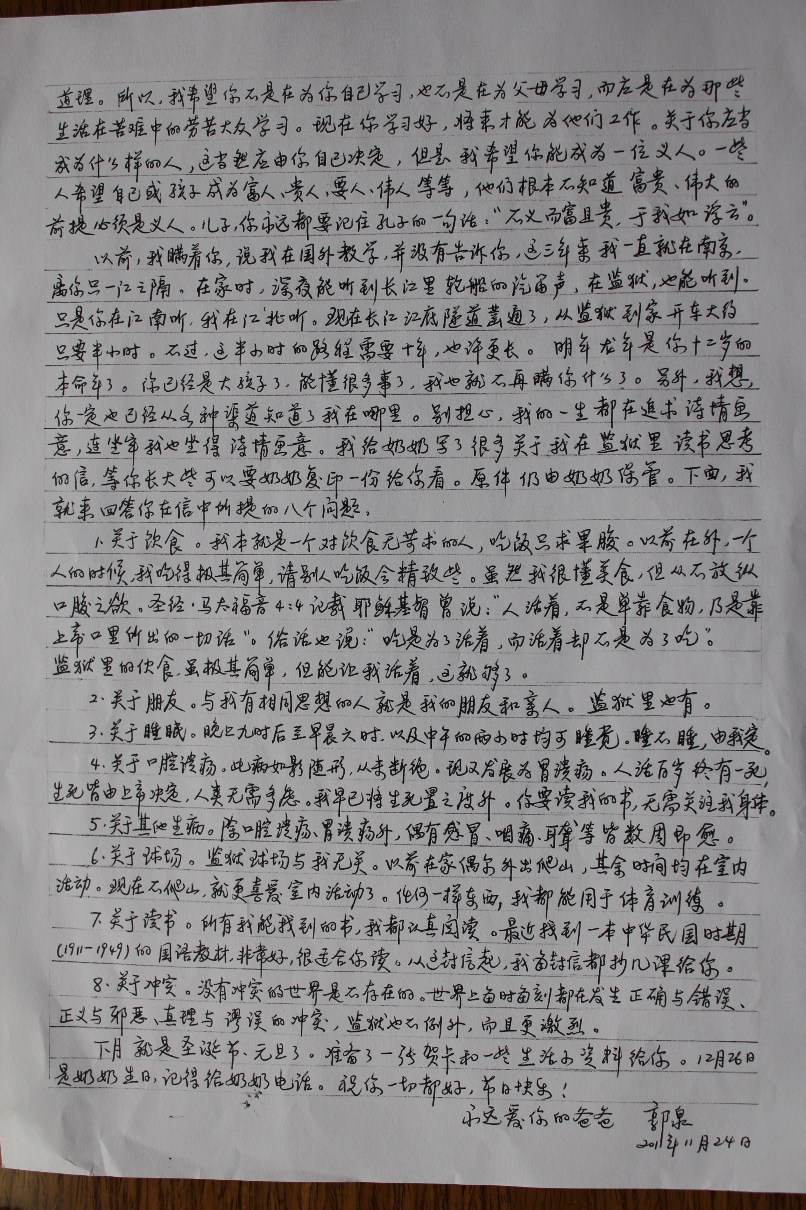 道理。所以,我希望你不是在为你自己学习,也不是在为父母学习,而应是在为那些
生活在苦难中的劳苦大众学习。现在你学习好,将来才能为他们工作。关于你应当
成为什么样的人,这当然应由你自己决定,但是我希望你能成为一位义人。一些
人希望自己或孩子成为富人、贵人、要人、伟人等等,他们根本不知道富贵、伟大的
前提必须是义人。儿子,你永远都要记住孔子的一句话:“不义而富且贵,于我如浮云”。
以前,我瞒着你,说我在国外教学,并没有告诉你,这三年来我一直就在南京,
离你只一江之隔。在家时,深夜能听到长江里轮船的汽笛声,在监狱,也能听到。
只是你在江南听,我在江北听。现在长江江底隧道贯通了,从监狱到家开车大约
只要半小时。不过,这半小时的路程需要十年,也许更长。明年龙年是你十二岁的
本命年了。你已经是大孩子了,能懂很多事了,我也就不再瞒你什么了。另外,我想,
你一定也已经从各种渠道知道了我在哪里。别担心,我的一生都在追求诗情画
意,连坐牢我也坐得诗情画意。我给奶奶写了很多关于我在监狱里读书思考
的信,等你长大些可以要奶奶复印一份给你看。原件仍由奶奶保管。下面,我
就来回答你在信中所提的八个问题。
1.关于饮食。我本就是一个对饮食无苛求的人,吃饭只求果腹。以前在外,一个
人的时候,我吃得极其简单,请别人吃饭会精致些。虽然我很懂美食,但从不放纵
口腹之欲。圣经·马太福音4:4记载耶稣基督曾说:“人活着,不是单靠食物,乃是靠
上帝口里所出的一切话”。俗话也说:“吃是为了活着,而活着却不是为了吃”。
监狱里的伙食,虽极其简单,但能让我活着,这就够了。
2.关于朋友。与我有相同思想的人就是我的朋友和亲人。监狱里也有。
3.关于睡眠。晚上九时后至早晨六时,以及中午的两小时均可睡觉。睡不睡,由我定。
4.关于口腔溃疡。此病如影随形,从未断绝。现又发展为胃溃疡。人活百岁终有一死,
生死皆由上帝决定,人类无需多虑。我早已将生死置之度外。你要读我的书,无需关注我身体。
5.关于其他生病。除口腔溃疡、胃溃疡外,偶有感冒、咽痛、耳聋等皆数周即愈。
6.关于球场。监狱球场与我无关。以前在家偶尔外出爬山,其余时间均在室内
活动。现在不爬山,就更喜爱室内活动了。任何一样东西,我都能用于体育训练。
7.关于读书。所有我能找到的书,我都认真阅读。最近找到一本中华民国时期
(1911-1949)的国语教材,非常好,很适合你读。从这封信起,我每封信都抄几课给你。
8.关于冲突。没有冲突的世界是不存在的。世界上每时每刻都在发生正确与错误、
正义与邪恶、真理与谬误的冲突,监狱也不例外,而且更激烈。
下月就是圣诞节、元旦了。准备了一张贺卡和一些生活小资料给你。12月26日
是奶奶生日,记得给奶奶电话。祝你一切都好,节日快乐!
永远爱你的爸爸 郭泉
2011年11月24日